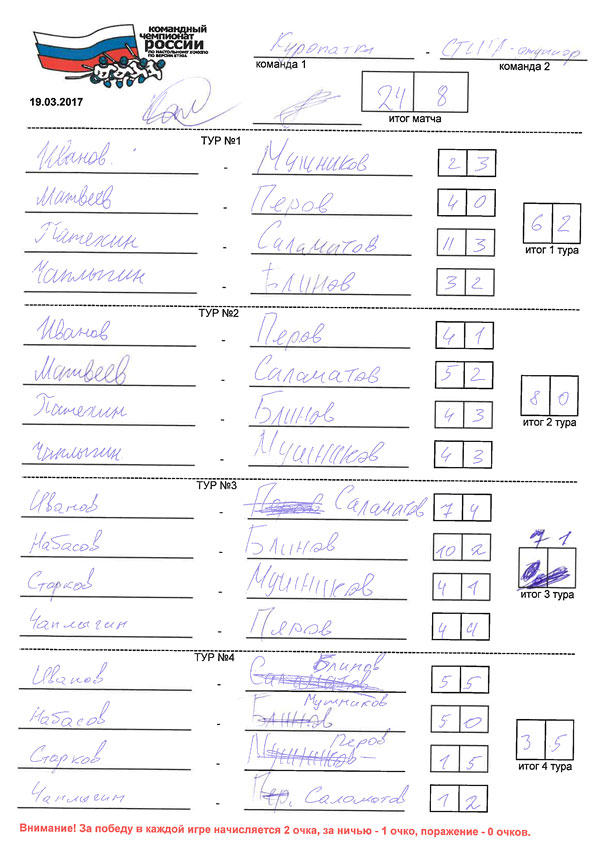 командный
чемпионат
россии
по настольному хоккею
по версии ктхоа
Куропатки - СТИГЛ-
команда 1 команда 2
24 8
19.03.2017
итог матча
ТУР №1
Иванов - Мушников 2 3
Матвеев - Перов 4 0
Патехин - Саламатов 11 3
6 2
итог 1 тура
Чаплыгин - Блинов 3 2
ТУР №2
Иванов - Перов 4 1
Матвеев - Саламатов 5 2
8 0
Патехин - Блинов 4 3
итог 2 тура
Чаплыгин - Мушников 4 3
ТУР №3
Иванов - Перов Саламатов 7 4
7 1
Набасов - Блинов 10 2
Старков - Мушников 4 1
итог 3 тура
Чаплыгин - Пяров 4 4
ТУР №4
Блинов
Иванов - Саламатов 5 5
Мушников
Набасов - Блинов 5 0
3 5
Перов
Старков - Мушников 1 5
итог 4 тура
Чаплыгин - Пер. Саломотов 1 2
Внимание! За победу в каждой игре начисляется 2 очка, за ничью - 1 очко, поражение - 0 очков.